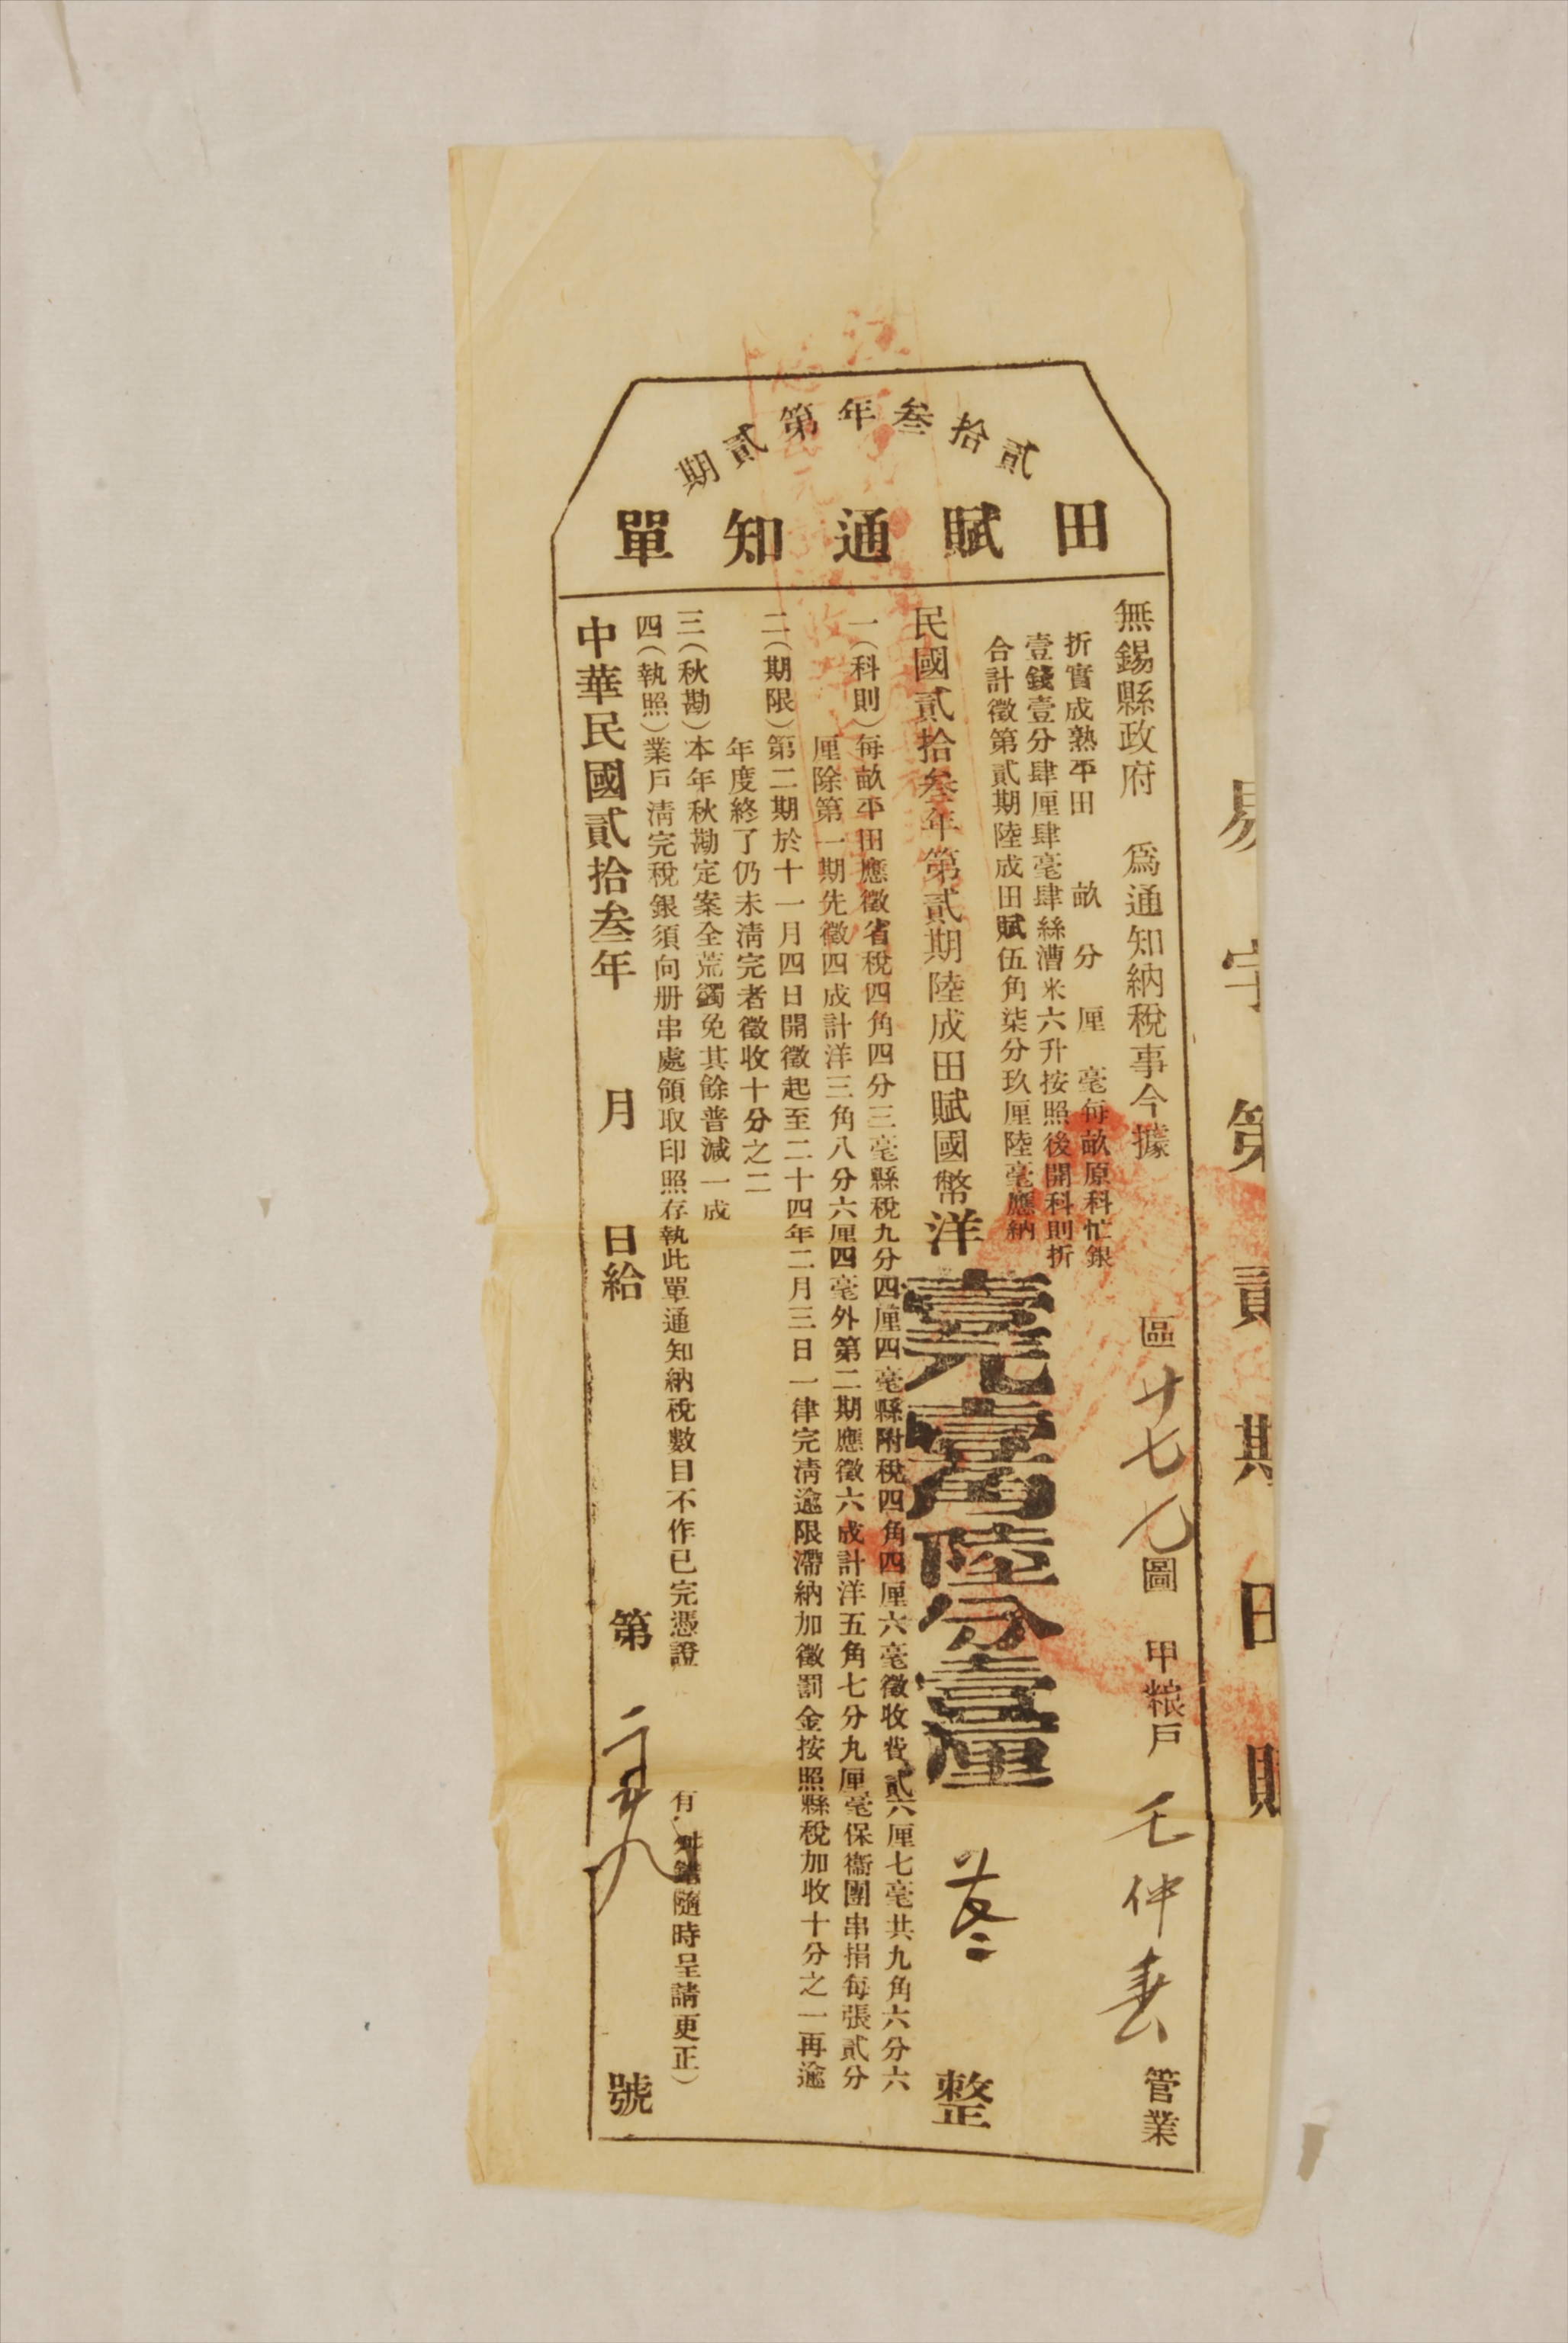 易字第貳期田賦
貳拾叁年第貳期
田賦通知單
無錫縣政府 為通知納稅事今據 區 廿七 圖 甲糧戶 仲春 管業
折實成熟平田 畝 分 厘 毫每畝原科忙銀
壹錢壹分肆厘肆毫肆絲漕米六升按照後開科則折
合計徵第貳期陸成田賦伍角柒分玖厘陸毫應納
民國貳拾叁年第貳期陸成田賦國幣洋壹元壹角陸分壹厘 整
一(科則)每畝平田應徵省稅四角四分三毫縣稅九分四厘四毫縣附稅四角四厘六毫徵收費貳六厘七毫共九角六分六
厘除第一期先徵四成計洋三角八分六厘四毫外第二期應徵六成計洋五角七分九厘毫保衞團串捐每張貳分
二(期限)第二期於十一月四日開徵起至二十四年二月三日一律完清逾限滯納加徵罰金按照縣稅加收十分之一再逾
年度終了仍未清完者徵收十分之二
三(秋勘)本年秋勘定案全荒蠲免其餘普減一成
四(執照)業戶清完稅銀須向册串處領取印照存執此單通知納稅數目不作已完憑證 有 錯隨時呈請更正)
中華民國貳拾叁年 月 日給 第 號